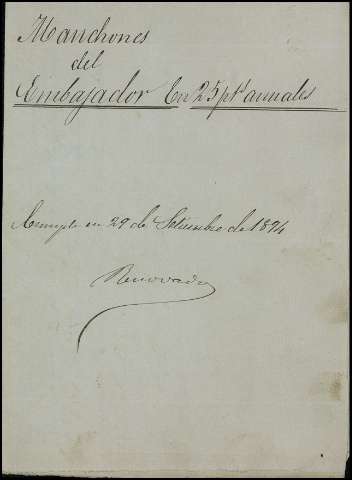 Manchones
del
Embajador En 25 pts annales
Cumple en 29 de Setiembre de 1894
Renovado